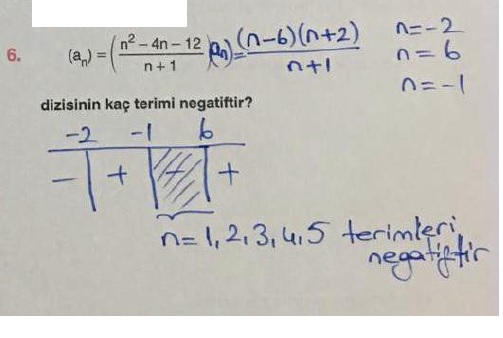 6. (aₙ) = ( n² – 4n – 12 / n + 1 ) (aₙ) = (n-6)(n+2) / n+1
n=-2
n=6
n=-1
dizisinin kaç terimi negatiftir?
-2 -1 6
- + - +
n=1,2,3,4,5 terimleri
negatiftir